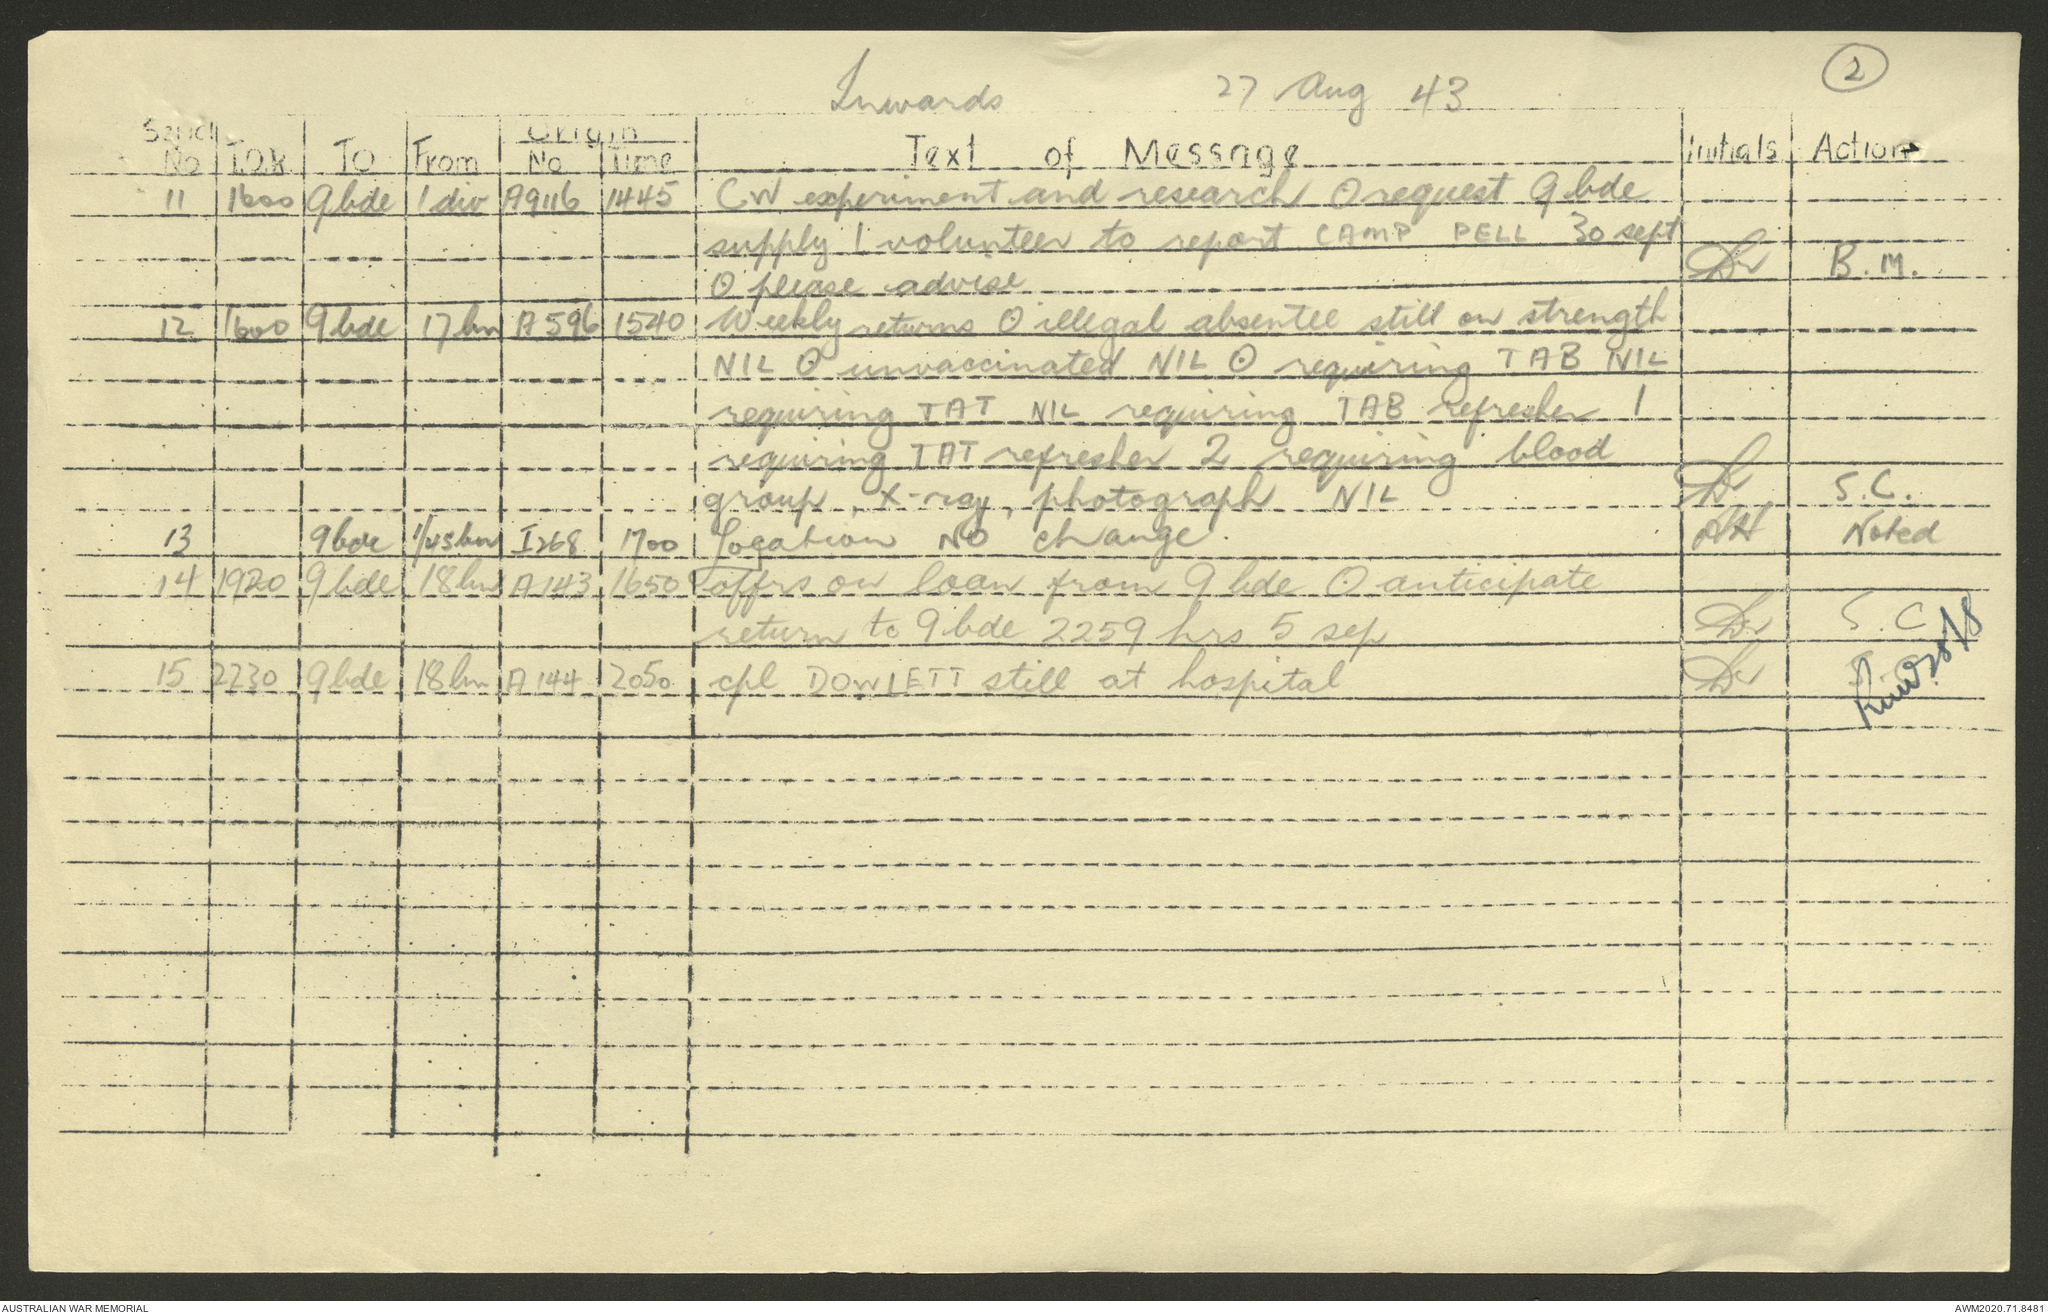 2
Inwards 27 Aug 43
Serial No TOR To From Origin No Time Text of Message Initials Action
11 1600 9 bde 1 div A9116 1445 CW experiment and research ʘ request 9 bde
supply 1 volunteer to report CAMP PELL 30 sept
ʘ please advise B.M.
12 1600 9 bde 17 bn A596 1540 Weekly returns ʘ illegal absentee still on strength
NIL ʘ unvaccinated NIL ʘ requiring TAB NIL
requiring TAT NIL requiring TAB refresher 1
requiring TAT refresher 2 requiring blood
group, X-ray, photograph NIL S.C.
13 9 bde 1/45 bn I268 1700 Location NO change. Noted
14 1920 9 bde 18 bn A143 1650 offrs on loan from 9 bde ʘ anticipate
return to 9 bde 2259 hrs 5 sep S.C
15 2230 9 bde 18 bn A144 2050 cpl DOWLETT still at hospital
28/8
AUSTRALIAN WAR MEMORIAL
AWM2020.71.8481